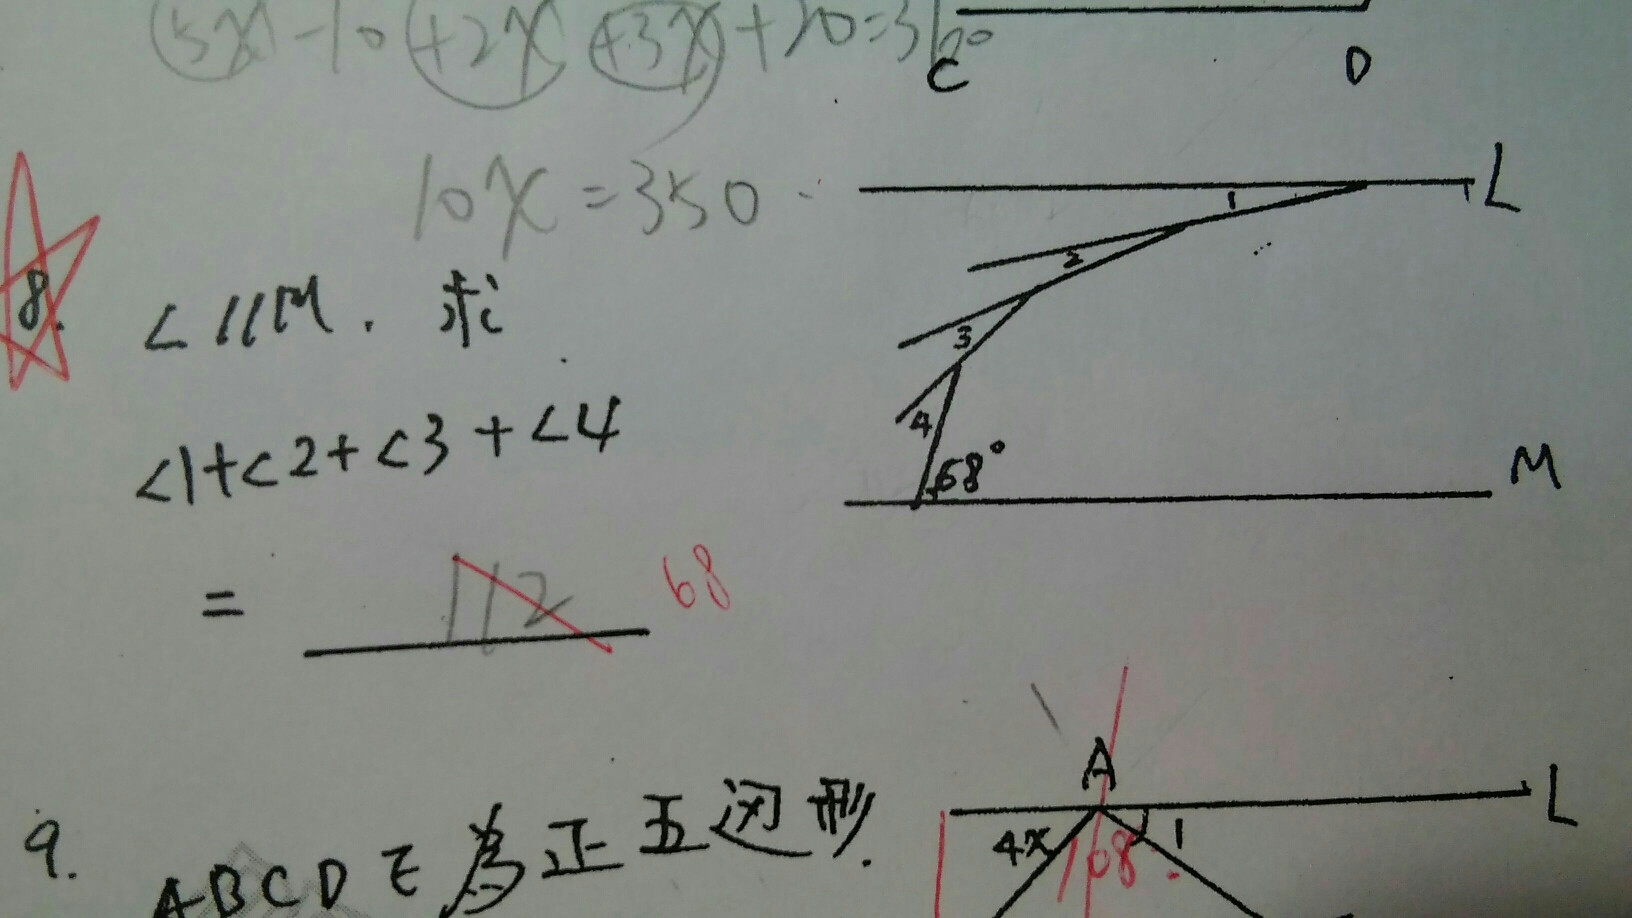 5x-10+2x+3x+20=360
C
D
10x=350
L
1
2
8. L//M. 求
3
∠1+∠2+∠3+∠4
4
68°
M
= 112 68
A
L
9. ABCDE為正五边形.
4x
68°
1